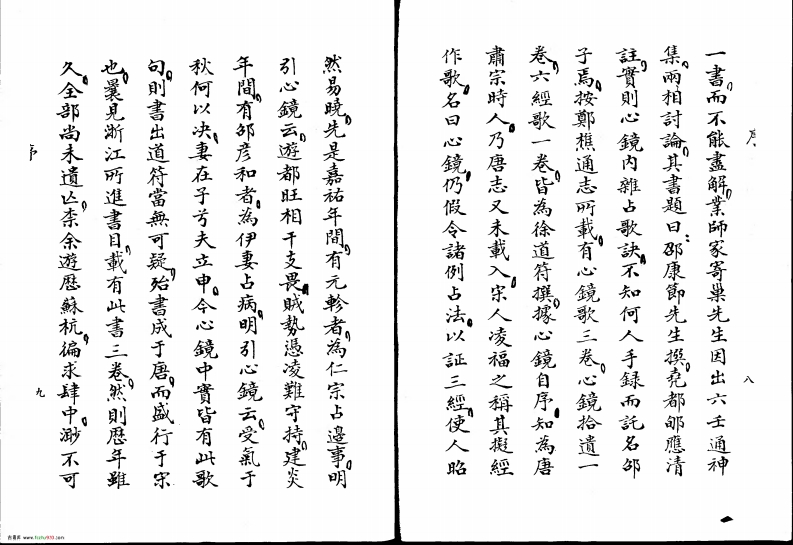 序
一書。而不能盡解。業師家寄巢先生因出六壬通神
集。兩相討論。其書題曰：邵康節先生撰。堯都郇應清
註。實則心鏡內雜占歌訣。不知何人手錄而託名邵
子焉。按鄭樵通志所載。有心鏡歌三卷。心鏡拾遺一
卷。六經歌一卷。皆為徐道符撰。據心鏡自序。知為唐
肅宗時人。乃唐志又未載入。宋人凌福之稱其擬經
作歌。名曰心鏡。仍假令諸例占法。以証三經。使人昭
八
然易曉。先是嘉祐年間。有元軫者。為仁宗占邊事。明
引心鏡云。遊都旺相干支畏。賊勢憑凌難守持。建炎
年間。有邵彥和者。為伊妻占病。明引心鏡云。受氣于
秋何以決。妻在子兮夫立申。今心鏡中實皆有此歌
句。則書出道符當無可疑。殆書成于唐。而盛行于宋
也。曩見浙江所進書目。載有此書三卷。然則歷年雖
久。全部尚未遺亾。柰余遊歷蘇杭。徧求肆中。渺不可
序
九
www.fozhu920.com